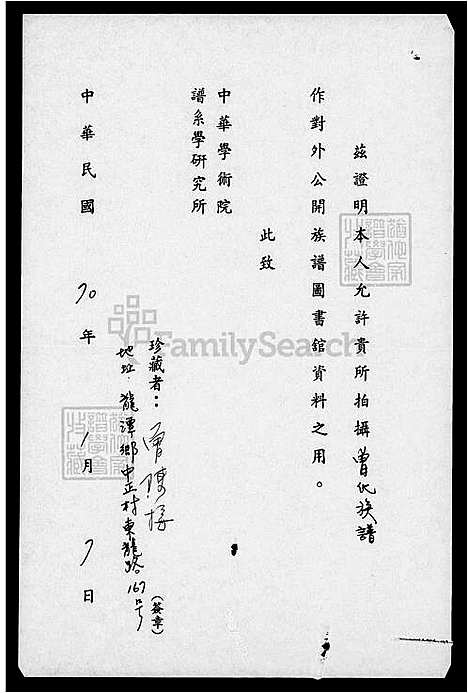 茲證明本人允許貴所拍攝曾氏族譜
作對外公開族譜圖書館資料之用。
此致
中華學術院
譜系學研究所
珍藏者：曾陳接
(簽章)
地址：龍潭鄉中正村東龍路167号
中華民國70年1月7日
FamilySearch